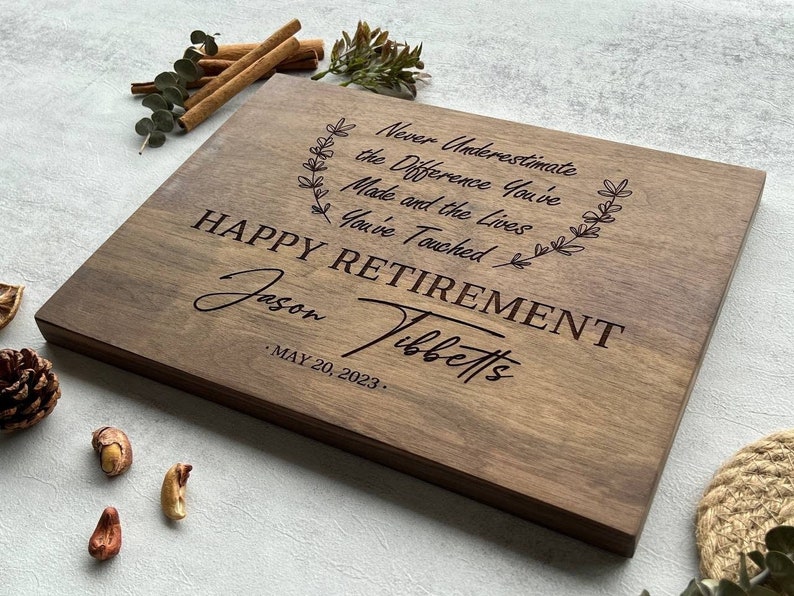 Never Underestimate
the Difference You've
Made and the Lives
You've Touched
HAPPY RETIREMENT
Jason Tibbetts
· MAY 20, 2023 ·